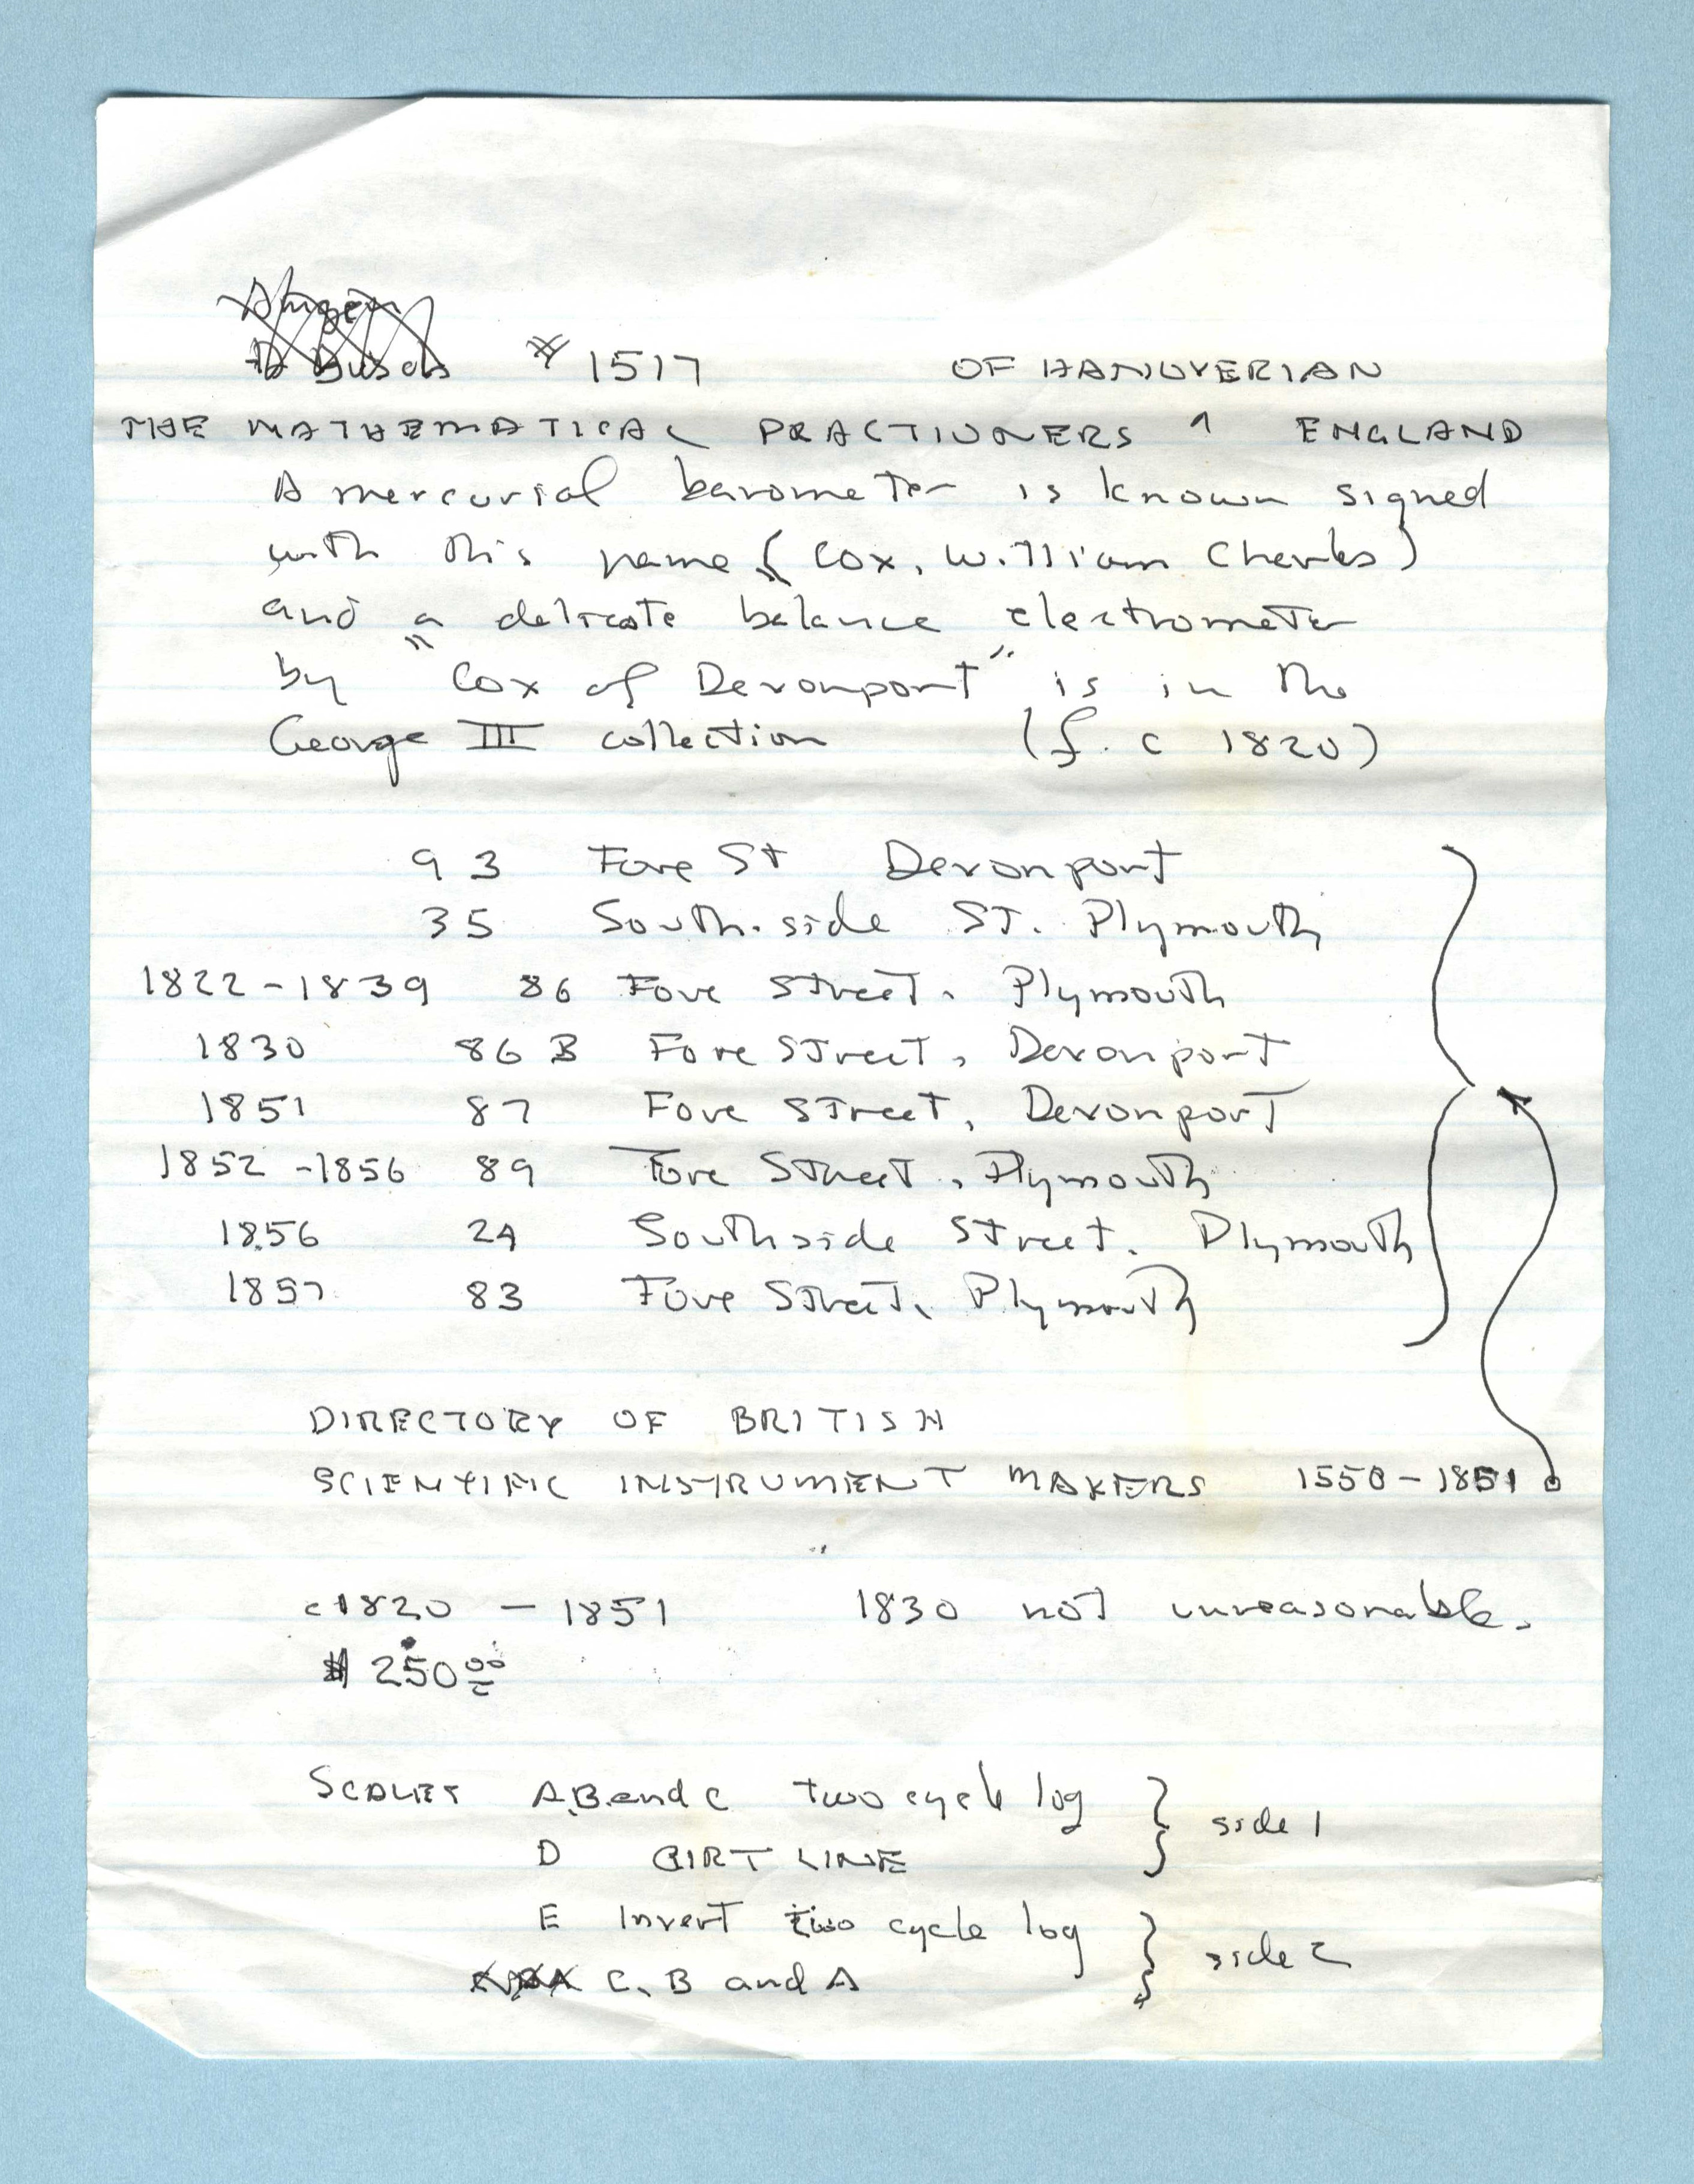 # 1517 OF HANOVERIAN
THE MATHEMATICAL PRACTIONERS ^ ENGLAND
A mercurial barometer is known signed
with this name (Cox, William Charles)
and "a delicate balance electrometer
by "Cox of Devonport" is in the
George III collection (f. c 1820)
93 Fore St Devonport
35 South-side ST. Plymouth
1822-1839 86 Fore Street, Plymouth
1830 86 B Fore Street, Devonport
1851 87 Fore Street, Devonport
1852-1856 89 Fore Street, Plymouth
1856 24 Southside Street, Plymouth
1857 83 Fore Street, Plymouth
DIRECTORY OF BRITISH
SCIENTIFIC INSTRUMENT MAKERS 1550-1851
c1820 - 1851 1830 not unreasonable.
$ 250.00
SCALES A,B and C two cycle log } side 1
D GIRT LINE
E Invert two cycle log } side 2
C, B and A